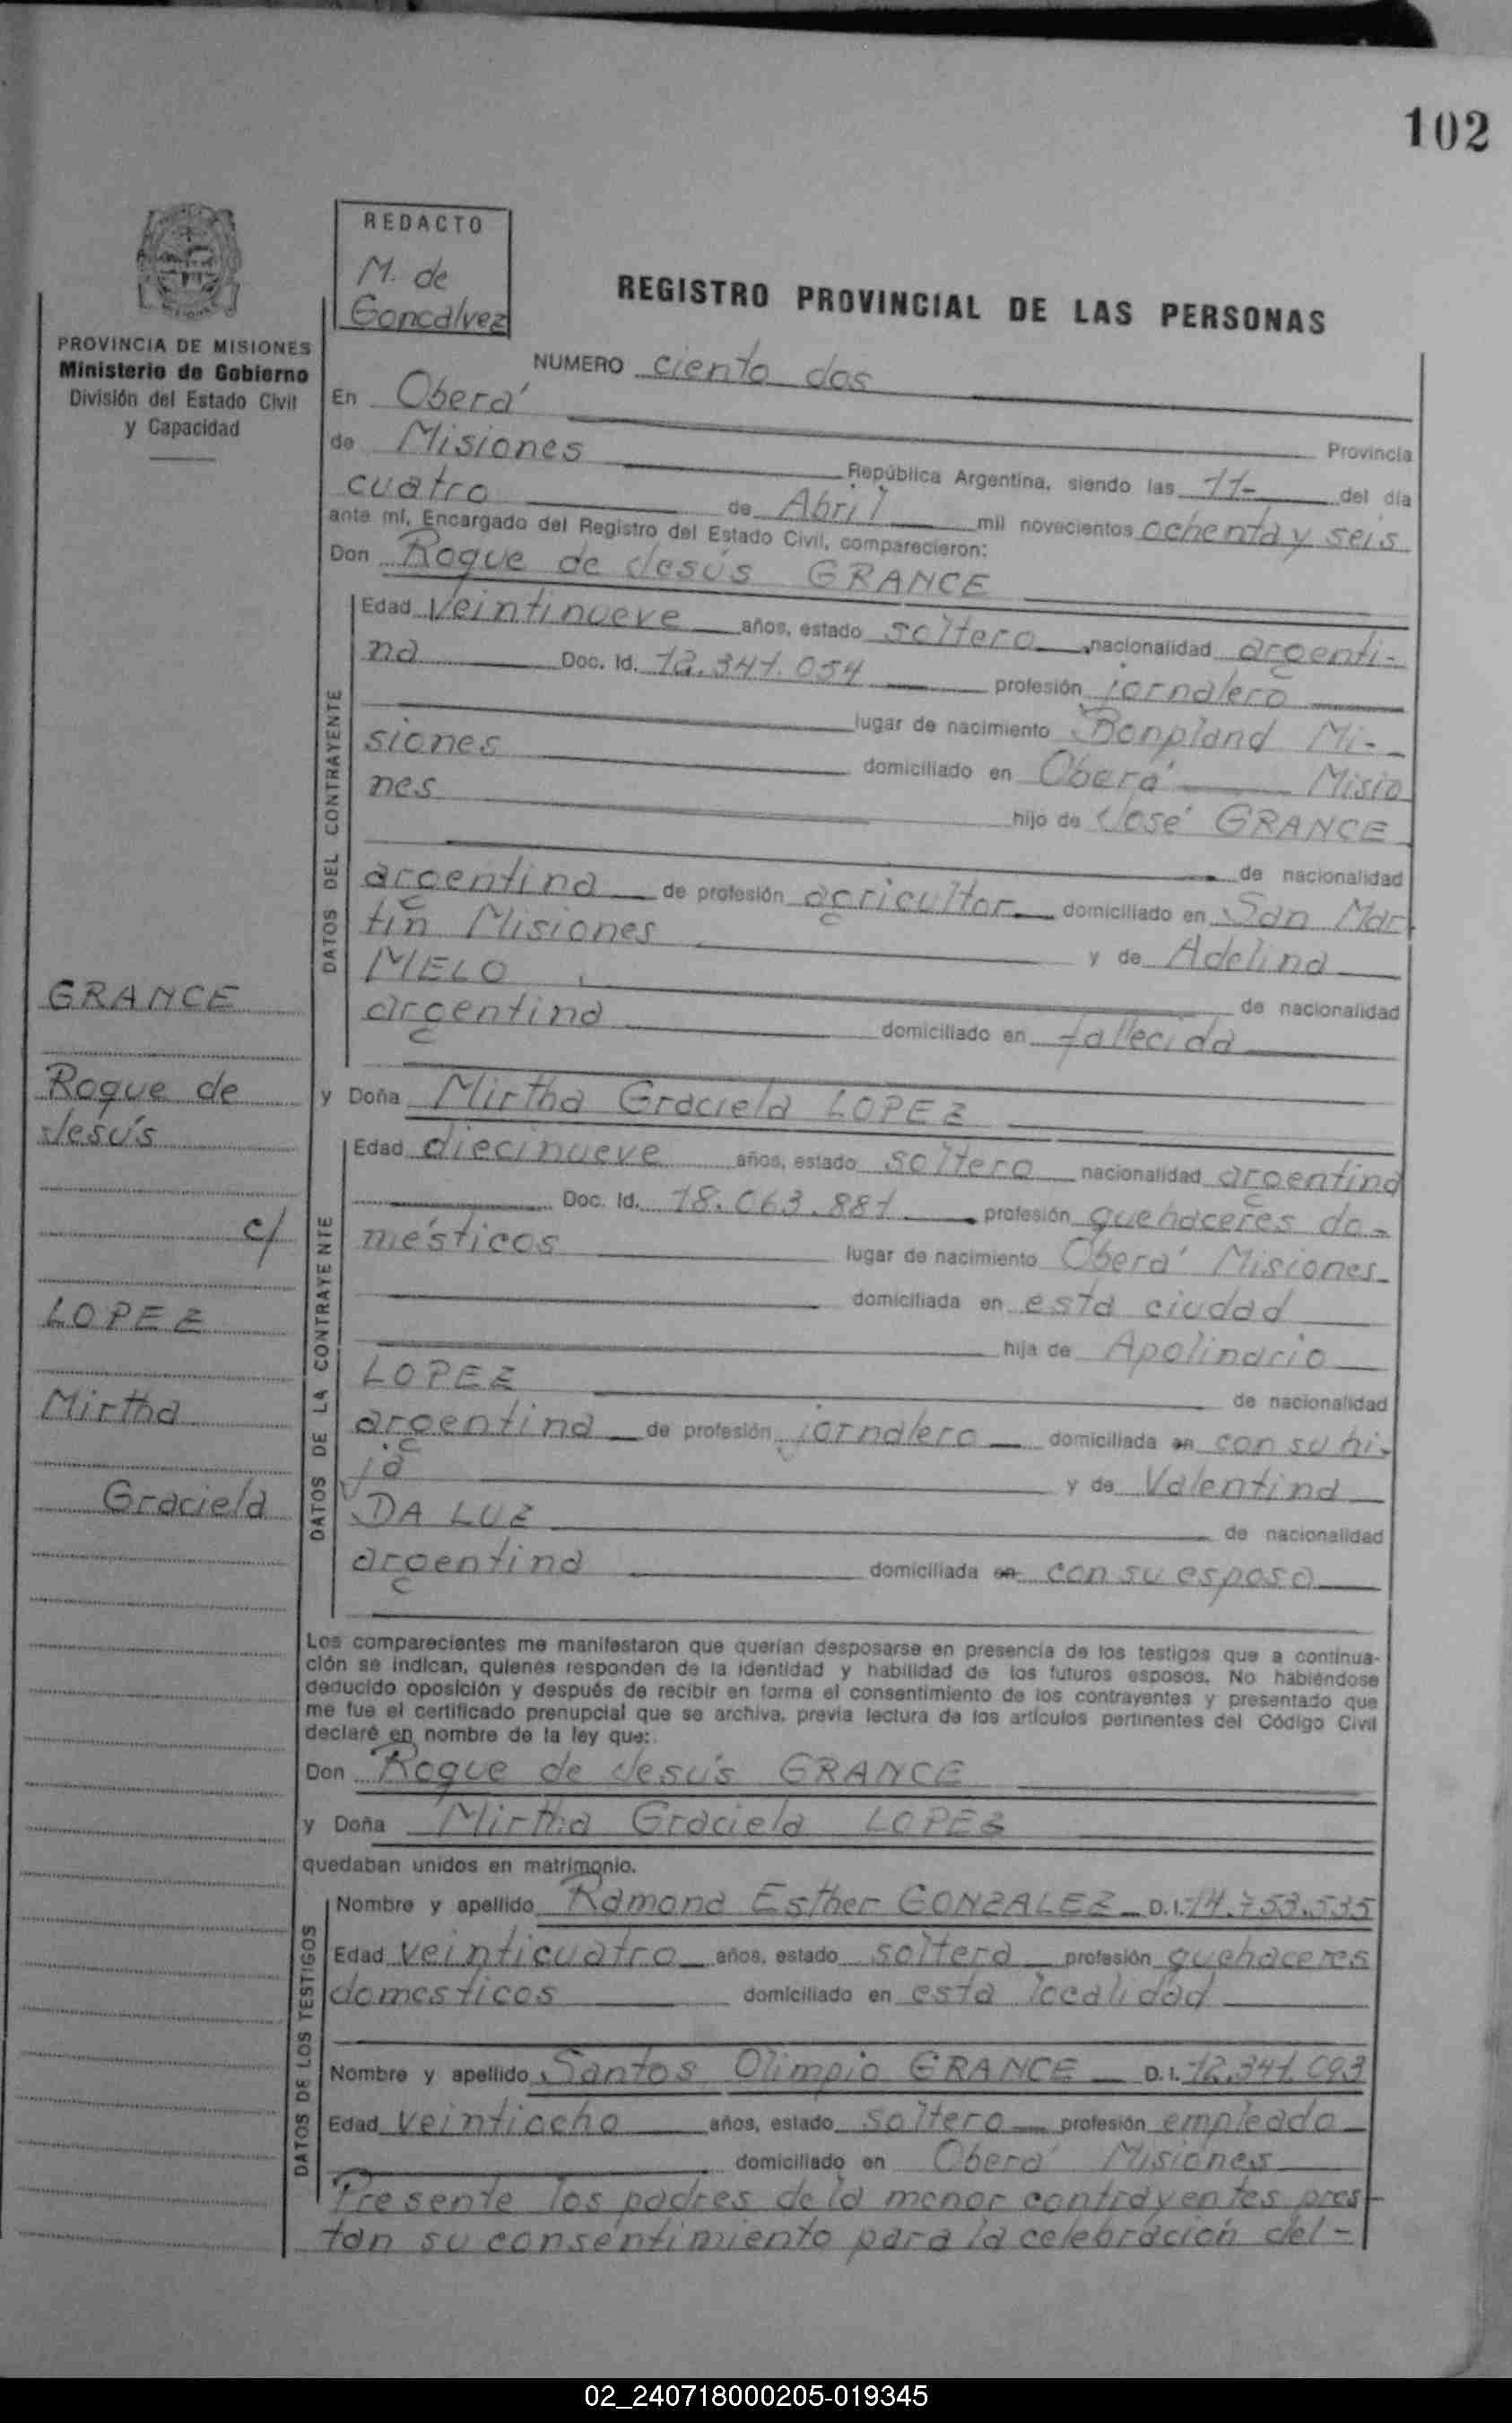 102
REDACTO
M. de
Goncalvez
REGISTRO PROVINCIAL DE LAS PERSONAS
PROVINCIA DE MISIONES
Ministerio de Gobierno
División del Estado Civil
y Capacidad
NUMERO ciento dos
En Oberá
Provincia
de Misiones República Argentina, siendo las 11- del día
cuatro de Abril mil novecientos ochenta y seis
ante mí, Encargado del Registro del Estado Civil, comparecieron:
Don Roque de Jesús GRANCE
DATOS DEL CONTRAYENTE
Edad veintinueve años, estado soltero nacionalidad argenti-
na Doc. Id. 12.341.054 profesión jornalero
lugar de nacimiento Bonpland Mi-
siones domiciliado en Oberá Misio
nes hijo de José GRANCE
de nacionalidad
argentina de profesión agricultor domiciliado en San Mar
tín Misiones y de Adelina
MELO de nacionalidad
argentina domiciliado en fallecida
y Doña Mirtha Graciela LOPEZ
DATOS DE LA CONTRAYENTE
Edad diecinueve años, estado soltera nacionalidad argentina
Doc. Id. 18.063.881 profesión quehaceres do-
mésticos lugar de nacimiento Oberá Misiones
domiciliada en esta ciudad
hija de Apolinario
LOPEZ de nacionalidad
argentina de profesión jornalero domiciliada en con su hi-
ja y de Valentina
DA LUZ de nacionalidad
argentina domiciliada en con su esposo
GRANCE
Roque de
Jesús
c/
LOPEZ
Mirtha
Graciela
Los comparecientes me manifestaron que querían desposarse en presencia de los testigos que a continua-
ción se indican, quienes responden de la identidad y habilidad de los futuros esposos. No habiéndose
deducido oposición y después de recibir en forma el consentimiento de los contrayentes y presentado que
me fue el certificado prenupcial que se archiva, previa lectura de los artículos pertinentes del Código Civil
declaré en nombre de la ley que:
Don Roque de Jesús GRANCE
y Doña Mirtha Graciela LOPEZ
quedaban unidos en matrimonio.
DATOS DE LOS TESTIGOS
Nombre y apellido Ramona Esther GONZALEZ D.I. 14.753.535
Edad veinticuatro años, estado soltera profesión quehaceres
domesticos domiciliado en esta localidad
Nombre y apellido Santos Olimpio GRANCE D.I. 12.341.093
Edad veintiocho años, estado soltero profesión empleado
domiciliado en Oberá Misiones
Presente los padres de la menor contrayentes pres-
tan su consentimiento para la celebración del-
02_240718000205-019345